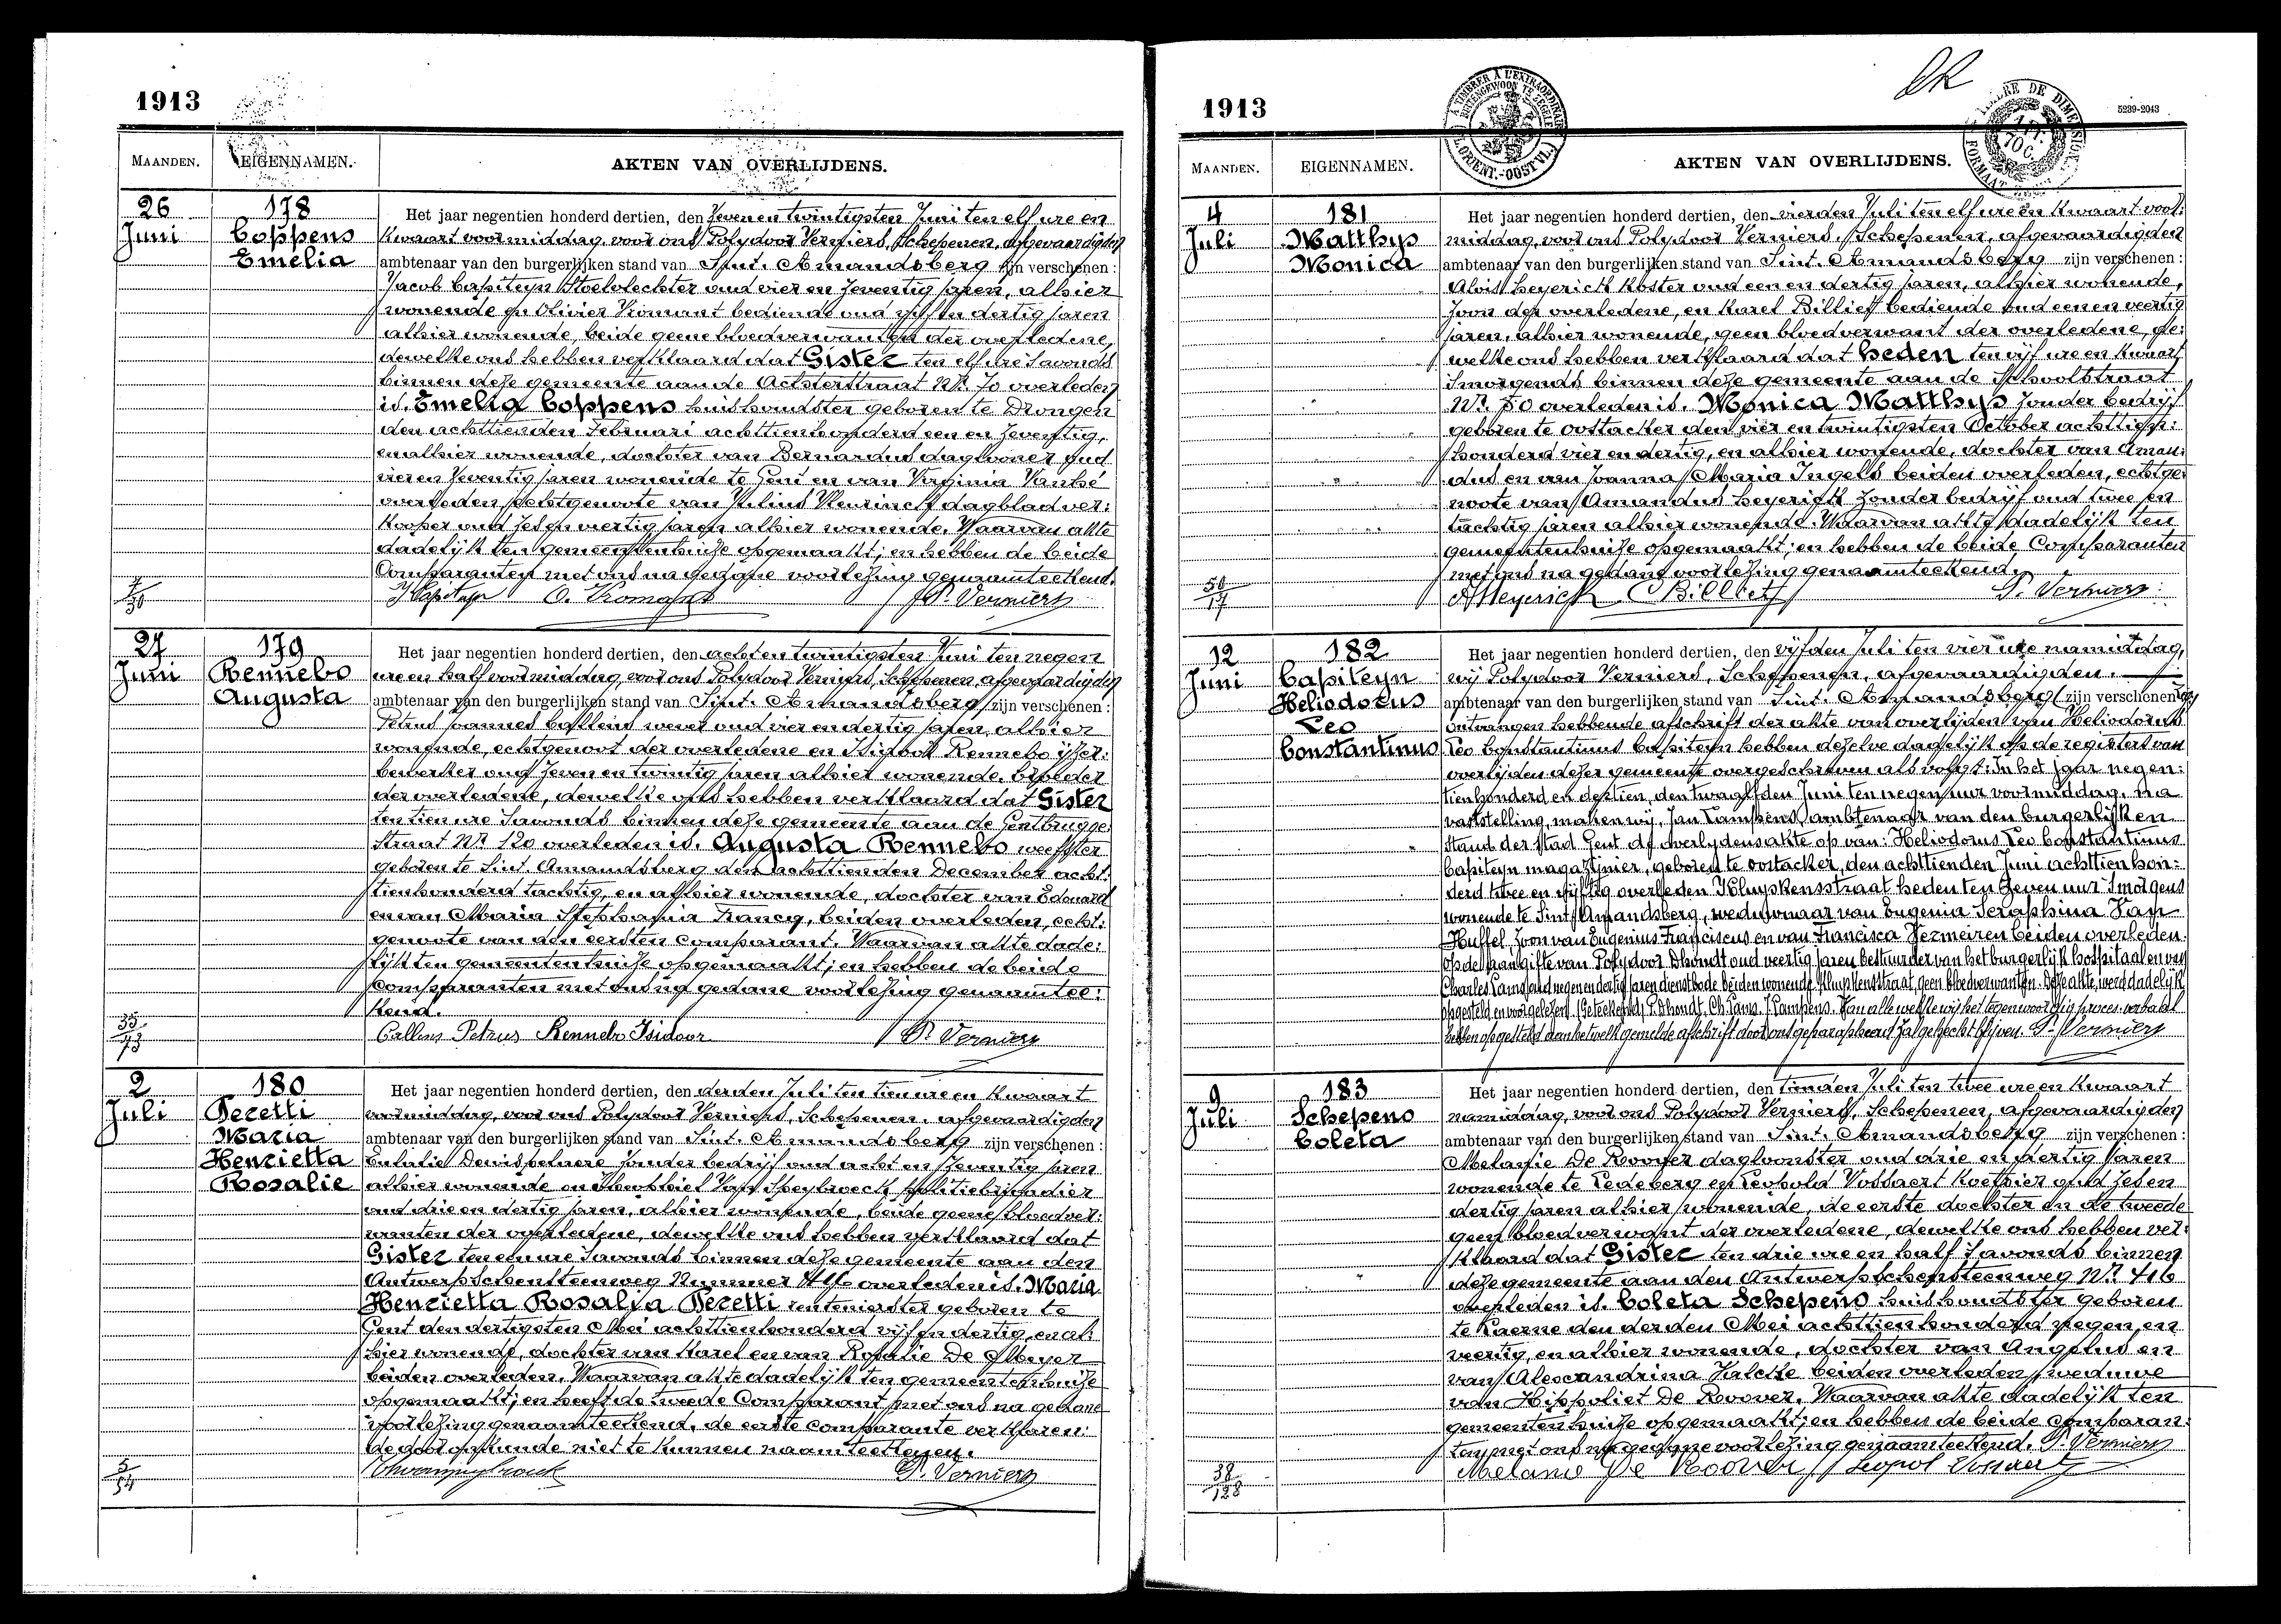 1913
MAANDEN. EIGENNAMEN. AKTEN VAN OVERLIJDENS.
26 Juni
178
Coppens
Emelia
Het jaar negentien honderd dertien, den zeven en twintigsten Juni ten elf ure en
kwaart voormiddag, voor ons Polydoor Verniers, Schepenen, afgevaardigden
ambtenaar van den burgerlijken stand van Sint. Amandsberg zijn verschenen :
Jacob Capiteyn Stoelvlechter oud vier en zeventig jaren, alhier
wonende en Olivier Vromant bediende oud vijf en dertig jaren
alhier wonende, beide geene bloedverwanten der overledene,
dewelke ons hebben verklaard dat Gister ten elf ure s'avonds
binnen deze gemeente aan de Achterstraat Nr. 70 overleden
is. Emelia Coppens huishoudster geboren te Drongen
den achttienden Februari achttienhonderd een en zeventig,
en alhier wonende, dochter van Bernardus daglooner oud
vier en zeventig jaren wonende te Gent en van Virginia Vanhé
overleden, echtgenoote van Julius Vleurinck dagbladver:
kooper oud zes en veertig jaren alhier wonende. Waarvan akte
dadelijk ten gemeentenhuize opgemaakt; en hebben de beide
Comparanten met ons na gedane voorlezing genaamteekend.
J. Capiteyn O. Vromant P. Verniers
27 Juni
179
Rennebo
Augusta
Het jaar negentien honderd dertien, den acht en twintigsten Juni ten negen
ure en half voormiddag, voor ons Polydoor Verniers, Schepenen, afgevaardigden
ambtenaar van den burgerlijken stand van Sint. Amandsberg zijn verschenen :
Petrus Joannes Callens wever oud vier en dertig jaren, alhier
wonende, echtgenoot der overledene en Isidoor Rennebo ijzer:
bewerker oud zeven en twintig jaren alhier wonende, broeder
der overledene, dewelke ons hebben verklaard dat Gister
ten tien ure s'avonds binnen deze gemeente aan de Gentbrugge:
Straat Nr. 120 overleden is. Augusta Rennebo weefster
geboren te Sint. Amandsberg den achttienden December acht:
tienhonderd tachtig, en alhier wonende, dochter van Edouard
en van Maria Stephania Francq, beiden overleden, echt:
genoote van den eersten comparant. Waarvan akte dade:
lijk ten gemeentenhuize opgemaakt; en hebben de beide
comparanten met ons na gedane voorlezing genaamtee:
kend.
35
73
Callens Petrus Rennebo Isidoor P. Verniers
2 Juli
180
Peretti
Maria
Henrietta
Rosalie
Het jaar negentien honderd dertien, den derden Juli ten tien ure en kwaart
voormiddag, voor ons Polydoor Verniers, Schepenen, afgevaardigden
ambtenaar van den burgerlijken stand van Sint. Amandsberg zijn verschenen :
Eulalie Denispeluere zonder bedrijf oud acht en zeventig jaren
alhier wonende en Theophiel Van Speybroeck politiebrigadier
oud drie en dertig jaren, alhier wonende, beide geene bloedver:
wanten der overledene, dewelke ons hebben verklaard dat
Gister ten een ure s'avonds binnen deze gemeente aan den
Antwerpschensteenweg Nummer overleden is. Maria
Henrietta Rosalia Peretti rentenierster geboren te
Gent den dertigsten Mei achttienhonderd vijf en dertig, en al:
hier wonende, dochter van Karel en van Rosalie De Meyer
beiden overleden. Waarvan akte dadelijk ten gemeentenhuize
opgemaakt; en heeft de tweede Comparant met ons na gedane
voorlezing genaamteekend, de eerste comparante verklaren:
de door onkunde niet te kunnen naamteekenen.
5
54
P. Verniers
1913
5239-2043
MAANDEN. EIGENNAMEN. AKTEN VAN OVERLIJDENS.
4 Juli
181
Matthys
Monica
Het jaar negentien honderd dertien, den vierden Juli ten elf ure en kwaart voor:
middag, voor ons Polydoor Verniers, Schepenen, afgevaardigden
ambtenaar van den burgerlijken stand van Sint. Amandsberg zijn verschenen :
Alois Heyerick koster oud een en dertig jaren, alhier wonende,
zoon der overledene, en Karel Billiet bediende oud een en veertig
jaren, alhier wonende, geen bloedverwant der overledene, de:
welke ons hebben verklaard dat heden ten vijf ure en kwaart
s'morgends binnen deze gemeente aan de Schoolstraat
Nr. 50 overleden is. Monica Matthys zonder bedrijf
geboren te Oostacker den vier en twintigsten October achttien:
honderd vier en dertig, en alhier wonende, dochter van Aman:
dus en van Joanna Maria Ingels beiden overleden, echtge:
noote van Amandus Heyerick zonder bedrijf oud twee en
tachtig jaren alhier wonende. Waarvan akte dadelijk ten
gemeentenhuize opgemaakt; en hebben de beide Comparanten
met ons na gedane voorlezing genaamteekend.
50
17
A Heyerick C Billiet P. Verniers
12 Juni
182
Capiteyn
Heliodorus
Leo
Constantinus
Het jaar negentien honderd dertien, den vijfden Juli ten vier ure namiddag,
wij Polydoor Verniers, Schepenen, afgevaardigden.
ambtenaar van den burgerlijken stand van Sint. Amandsberg zijn verschenen
ontvangen hebbende afschrift der akte van overlijden van Heliodorus
Leo Constantinus Capiteyn hebben dezelve dadelijk op de registers van
overlijden dezer gemeente overgeschreven als volgt: In het jaar negen:
tienhonderd en dertien, den twaalfden Juni ten negen uur voormiddag, na
vaststelling, maken wij, Jan Lampens, ambtenaar van den burgerlijken
Stand der stad Gent de overlydensakte op van: Heliodorus Leo Constantinus
Capiteyn magazijnier, geboren te Oostacker, den achttienden Juni achttien hon:
derd twee en vijftig overleden Kluyskensstraat heden ten zeven uur s'morgens
wonende te Sint Amandsberg, weduwnaar van Eugenia Seraphina Van
Huffel, zoon van Eugenius Franciscus en van Francisca Vermeiren beiden overleden.
Op de aangifte van Polydoor Dhondt oud veertig jaren bestuurder van het burgerlijk hospitaal en van
Charles Lams oud negen en dertig jaren dienstbode beiden wonende Kluyskensstraat, geen bloedverwanten. Deze akte, werd dadelijk
opgesteld en voorgelezen. (Geteekend) P. Dhondt. Ch. Lams. J. Lampens. Van alle welke wij het tegenwoordig proces-verbaal
hebben opgesteld aan hetwelk gemelde afschrift door ons geparapheerd zal gehecht blijven. P. Verniers
9 Juli
183
Schepens
Coleta
Het jaar negentien honderd dertien, den tienden Juli ten twee ure en kwaart
namiddag, voor ons Polydoor Verniers, Schepenen, afgevaardigden
ambtenaar van den burgerlijken stand van Sint. Amandsberg zijn verschenen :
Melanie De Roover dagloonster oud drie en dertig jaren
wonende te Ledeberg en Leopold Vossaert koetsier oud zes en
dertig jaren alhier wonende, de eerste dochter en de tweede
geen bloedverwant der overledene, dewelke ons hebben ver:
klaard dat Gister ten drie ure en half s'avonds binnen
deze gemeente aan den Antwerpschensteenweg Nr. 416
overleden is. Coleta Schepens huishoudster geboren
te Kaerne den derden Mei achttienhonderd negen en
veertig, en alhier wonende, dochter van Angelus en
van Alexandrina Valcke beiden overleden, weduwe
van Hippoliet De Roover. Waarvan akte dadelijk ten
gemeentenhuize opgemaakt; en hebben de beide comparan:
ten met ons na gedane voorlezing genaamteekend. P. Verniers
38
128
Melanie De Roover Leopol Vossaert